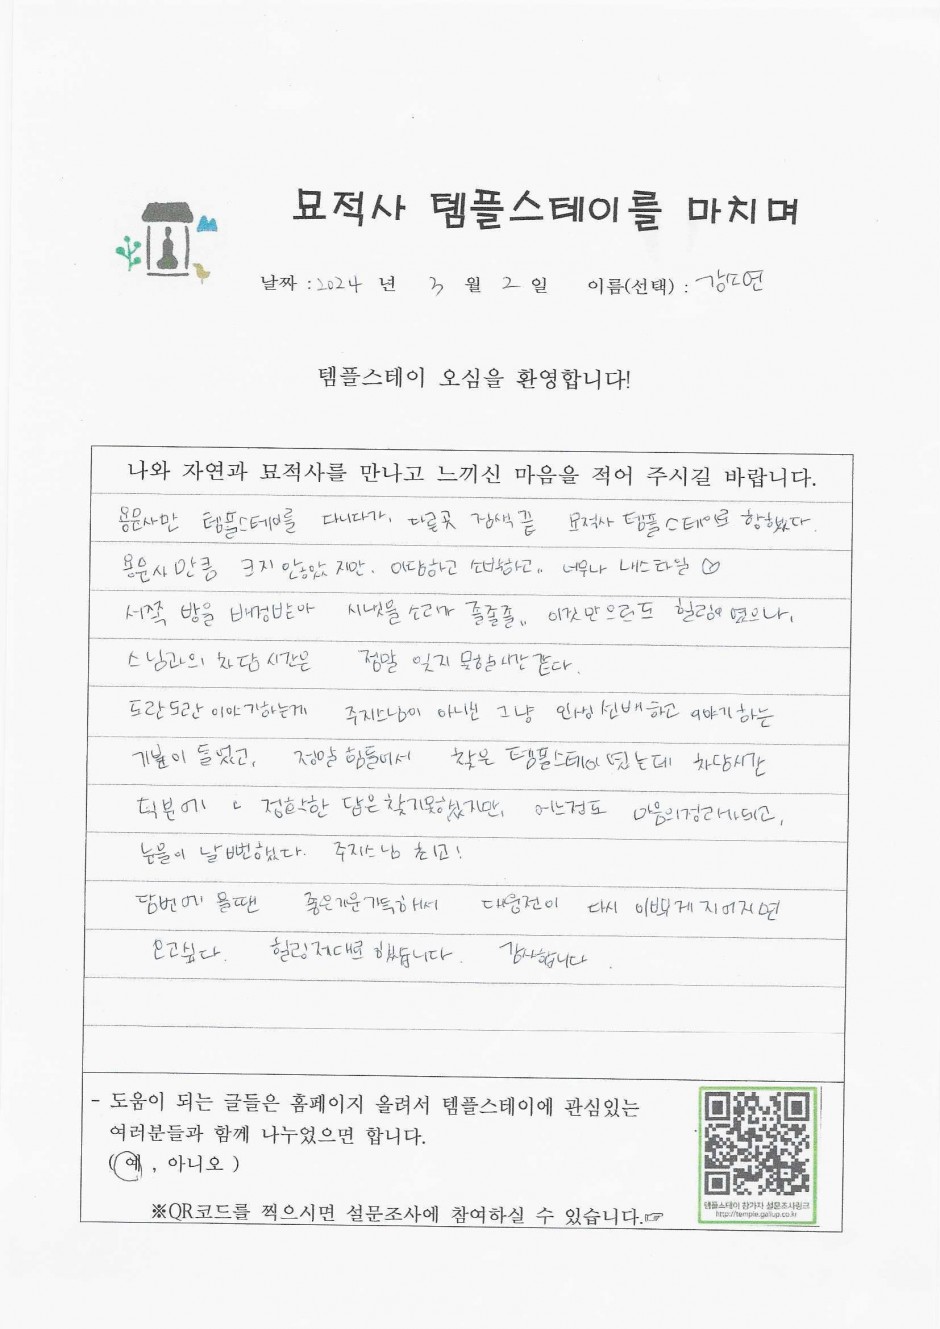 묘적사 템플스테이를 마치며
날짜 : 2024 년 3 월 2 일 이름(선택) : 강도연
템플스테이 오심을 환영합니다!
나와 자연과 묘적사를 만나고 느끼신 마음을 적어 주시길 바랍니다.
용문사만 템플스테이를 다니다가, 다른곳 검색끝 묘적사 템플스테이로 향했다.
용문사만큼 크지 않았지만. 아담하고 소박하고.. 너무나 내스타일 ♡
서쪽 방을 배정받아 시냇물 소리가 졸졸졸.. 이것만으로도 힐링이 였으나,
스님과의 차담 시간은 정말 잊지 못할 시간 같다.
도란도란 이야기하는게 주지스님이 아니랜 그냥 인생 선배하고 이야기하는
기분이 들었고, 정말 힘들어서 찾은 템플스테이 였는데 차담시간
덕분에 정확한 답은 찾지못했지만, 어느정도 마음의정리가되고,
눈물이 날뻔했다. 주지스님 최고!
담번에 올땐 좋은기운가득해서 대웅전이 다시 이쁘게 지어지면
오고싶다. 힐링제대로 했습니다. 감사합니다.
- 도움이 되는 글들은 홈페이지 올려서 템플스테이에 관심있는
여러분들과 함께 나누었으면 합니다.
( 예 , 아니오 )
※QR코드를 찍으시면 설문조사에 참여하실 수 있습니다.☞
템플스테이 참가자 설문조사링크
http://temple.gallup.co.kr